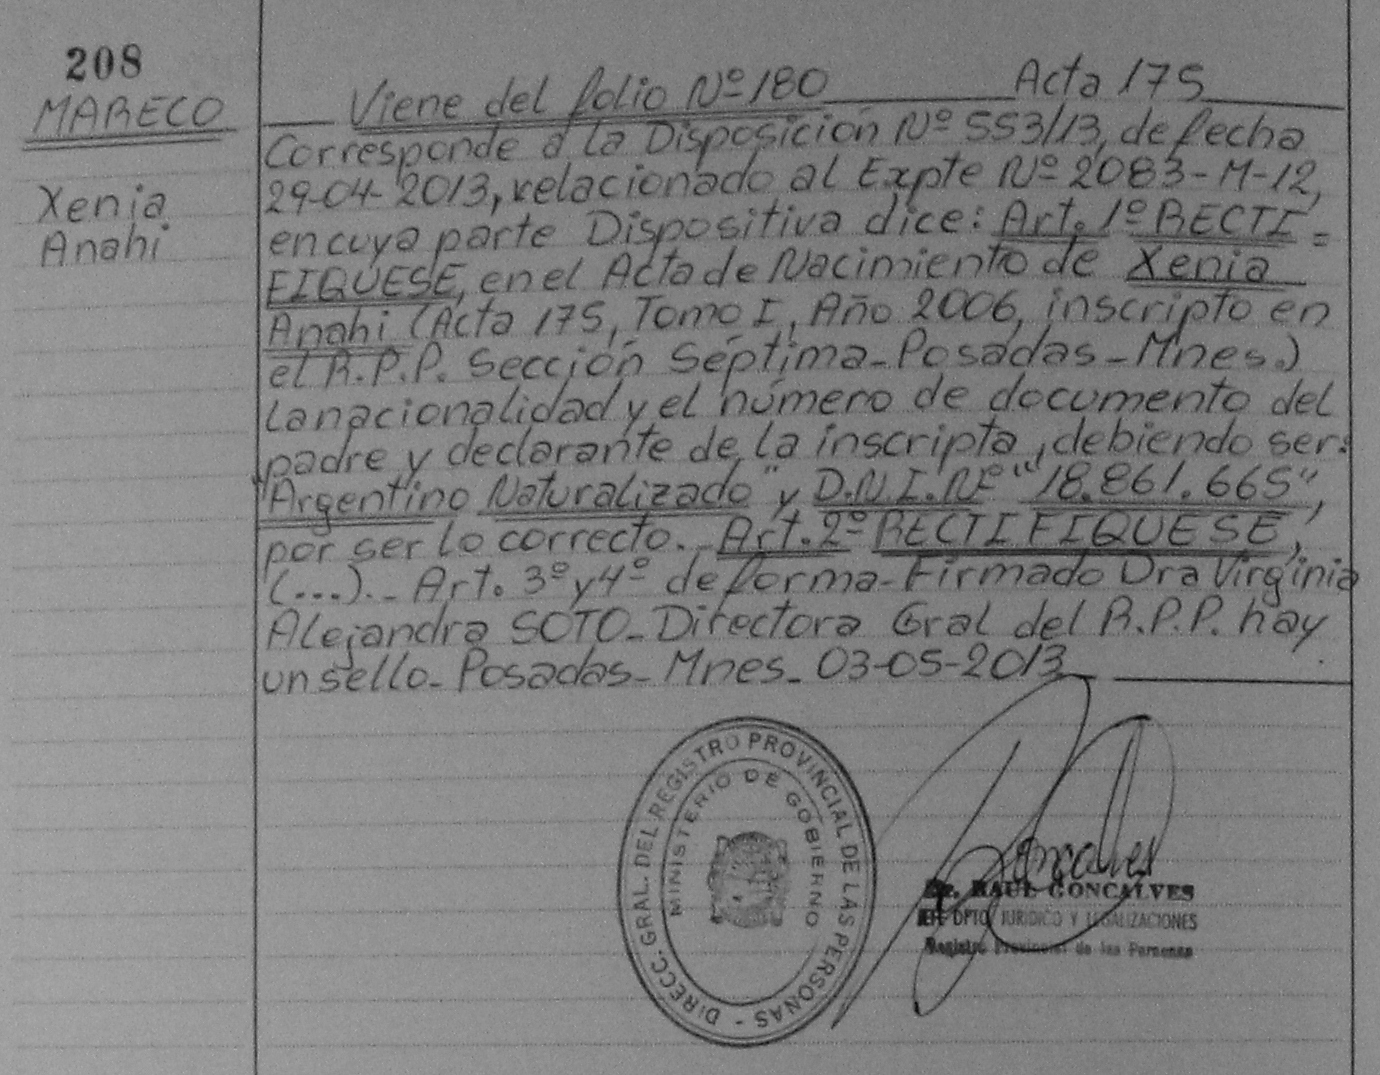 208
MARECO
Xenia
Anahi
Viene del folio Nº 180 Acta 175
Corresponde a la Disposición Nº 553/13, de fecha
29-04-2013, relacionado al Expte Nº 2083-M-12,
en cuya parte Dispositiva dice: Art. 1º RECTI=
FIQUESE, en el Acta de Nacimiento de Xenia
Anahi (Acta 175, Tomo I, Año 2006, inscripto en
el R.P.P. Sección Séptima-Posadas-Mnes.)
la nacionalidad y el número de documento del
padre y declarante de la inscripta, debiendo ser:
"Argentino Naturalizado" y D.N.I. Nº "18.861.665",
por ser lo correcto.- Art. 2º RECTIFIQUESE,
(...).- Art. 3º y 4º de forma-Firmado Dra Virginia
Alejandra SOTO-Directora Gral del R.P.P. hay
un sello-Posadas-Mnes-03-05-2013
DIRECC. GRAL. DEL REGISTRO PROVINCIAL DE LAS PERSONAS -
MINISTERIO DE GOBIERNO
Goncalves
Dr. RAUL GONCALVES
DPTO JURIDICO Y LEGALIZACIONES
Registro Provincial de las Personas